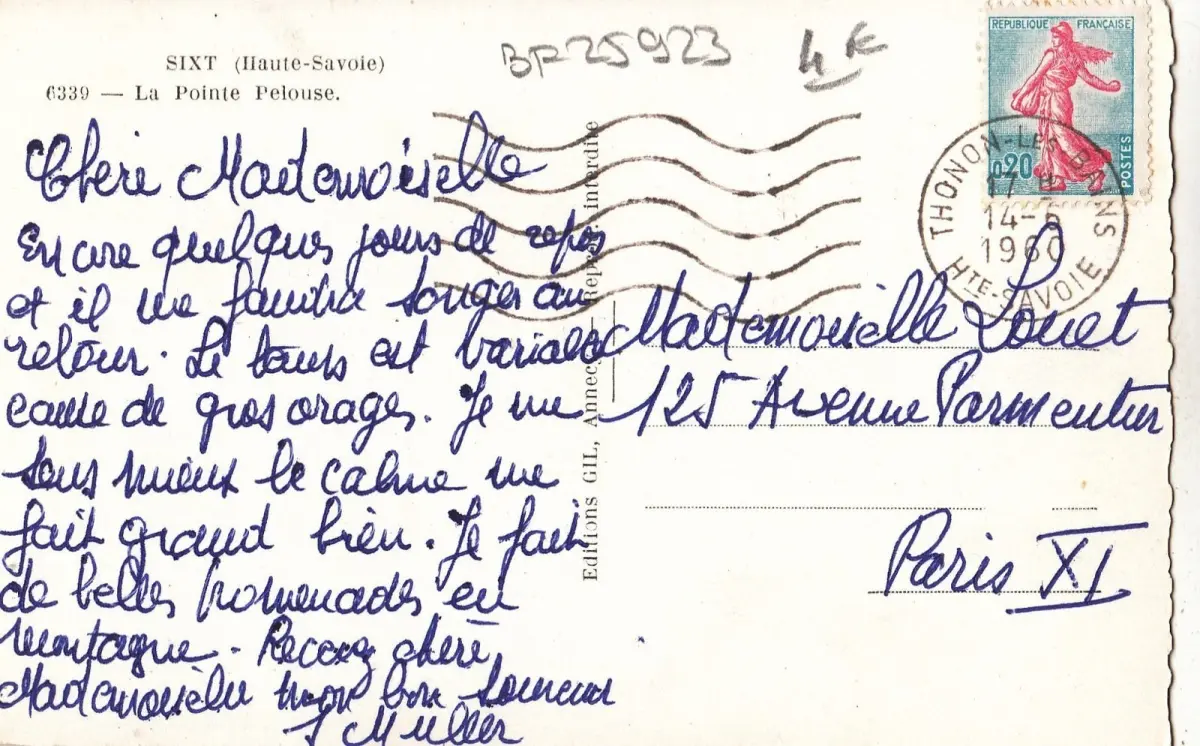 SIXT (Haute-Savoie)
6339 — La Pointe Pelouse.
BF 25923
4€
REPUBLIQUE FRANÇAISE
0,20
POSTES
THONON-LES BAINS
17 H
14-6
1960
HTE-SAVOIE
Chère Mademoiselle
Encore quelques jours de repos
et il me faudra songer au
retour. Le temps est variable
cause de gros orages. Je me
sens mieux le calme me
fait grand bien. Je fait
de belles promenades en
montagne. Recevez chère
Mademoiselle mon bon souvenir
J Muller
Editions GIL, Annecy — Repr. interdite
Mademoiselle Louet
125 Avenue Parmentier
Paris XI